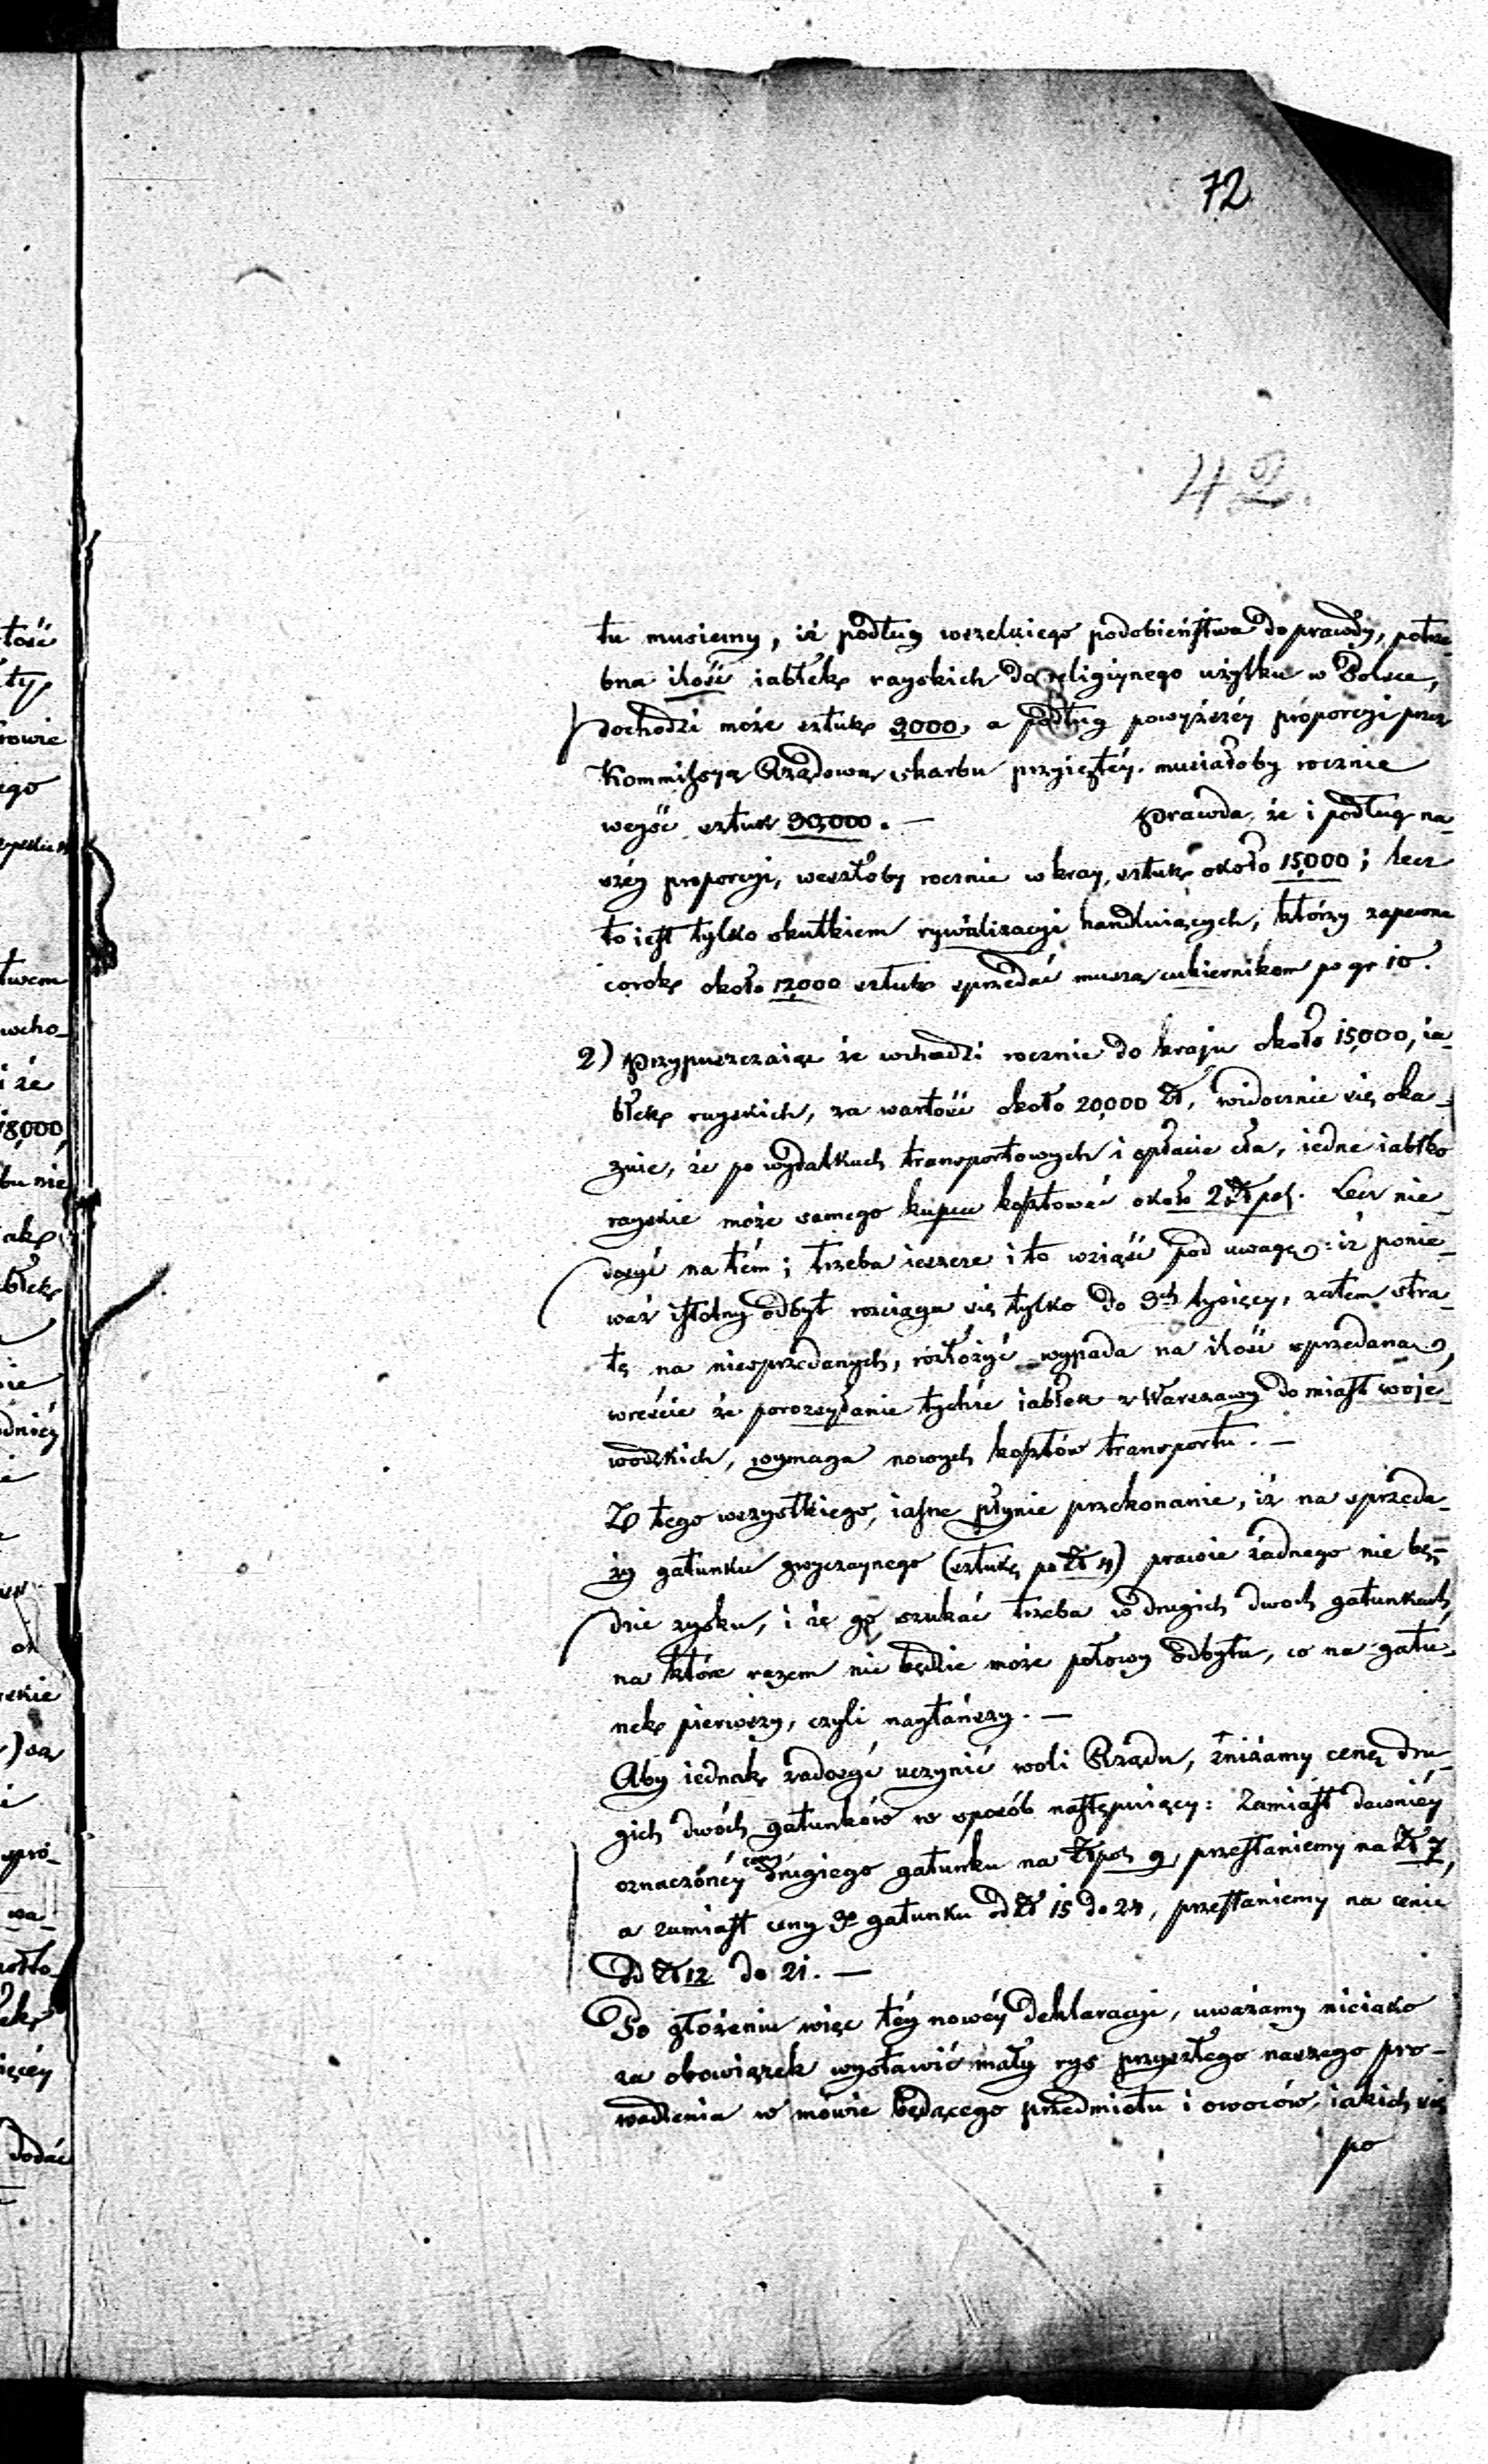 72
42.
tu musiemy, iż podług wszelkiego podobieństwa do prawdy, potrze-
bna ilość iabłek rayskich do religiynego użytku w Polsce,
dochodzi może sztuk 3,000, a podług powyższéy proporcyi przez
Kommissyą Rządową skarbu przyiętéy, musiałoby rocznie
weyść sztuk 30,000. — Prawda, że i podług na-
széy proporcyi, weszłoby rocznie w kray, sztuk około 15,000; lecz
to iest tylko skutkiem rywalizacyi handluiących, którzy zapewne
corok około 12,000 sztuk sprzedać muszą cukiernikom po gr 10.
2) Przypuszczaiąc że wchodzi rocznie do kraju około 15,000, ia-
błek rayskich, za wartość około 20,000 Zł, widocznie się oka-
zuie, że po wydatkach transportowych i opłacie cła, iedne iabłko
rayskie może samego kupca kosztować około 2 Zł pol. Lecz nie
dosyć na tém; trzeba ieszcze i to wziąść pod uwagę: iż ponie-
waż istotny odbyt rosciąga się tylko do 3ch tysięcy, zatem stra-
tę na niesprzedanych, rozłożyć wypada na ilość sprzedaną,
wreście że porozsyłanie tychże iabłek z Warszawy do miast woje-
wódzkich, wymaga nowych kosztów transportu. —
Z tego wszystkiego, iasne płynie przekonanie, iż na sprzeda-
ży gatunku zwyczaynego (sztukę po Zł 4) prawie żadnego nie bę-
dzie zysku, i że go szukać trzeba w drugich dwoch gatunkach,
na które razem nie będzie może połowy odbytu, co na gatu-
nek pierwszy, czyli naytańszy. —
Aby iednak zadosyć uczynić woli Rządu, zniżamy cenę dru-
gich dwóch gatunków w sposób następuiący: Zamiast dawniéy
oznaczonéy ceny drugiego gatunku na Zł pol 9, przestaniemy na Zł 7,
a zamiast ceny 3o gatunku od Zł 15 do 24, przestaniemy na cenie
od Zł 12 do 21. —
Po złożeniu więc téy nowéy deklaracyi, uważamy nieiako
za obowiązek wystawić mały rys przyszłego naszego pro-
wadzenia w mowie będącego przedmiotu i owoców iakich się
po